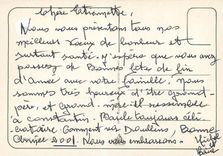 Chère Antoinette.
Nous vous présentons tous nos
meilleurs vœux de bonheur et
surtout santé. J'espère que vous avez
passer de Bonne fête de fin
d'année avec votre famille. Nous
sommes très heureux d'être grand-
père et Grand-mère il ressemble
à Constantin. Paule toujours céli-
bataire. Comment va Doullens, Bonne
Année 2001. Nous vous embrassons.